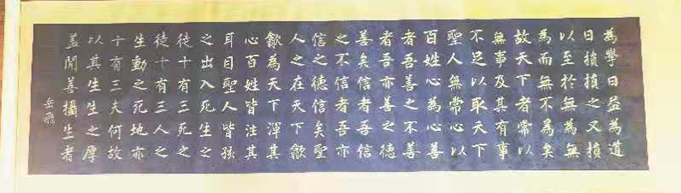 為學日益為道
日損損之又損
以至於無為無
為而無不為矣
故天下者常以
無事及其有事
不足以取天下
聖人無常心以
百姓心為心善
者吾善之不善
者吾亦善之德
善矣信者吾信
之不信者吾亦
信之德信矣聖
人之在天下歙
歙為天下渾其
心百姓皆注其
耳目聖人皆孩
之出入死生之
徒十有三死之
徒十有三人之
生動之死地亦
十有三夫何故
以其生生之厚
蓋聞善攝生者
岳飛